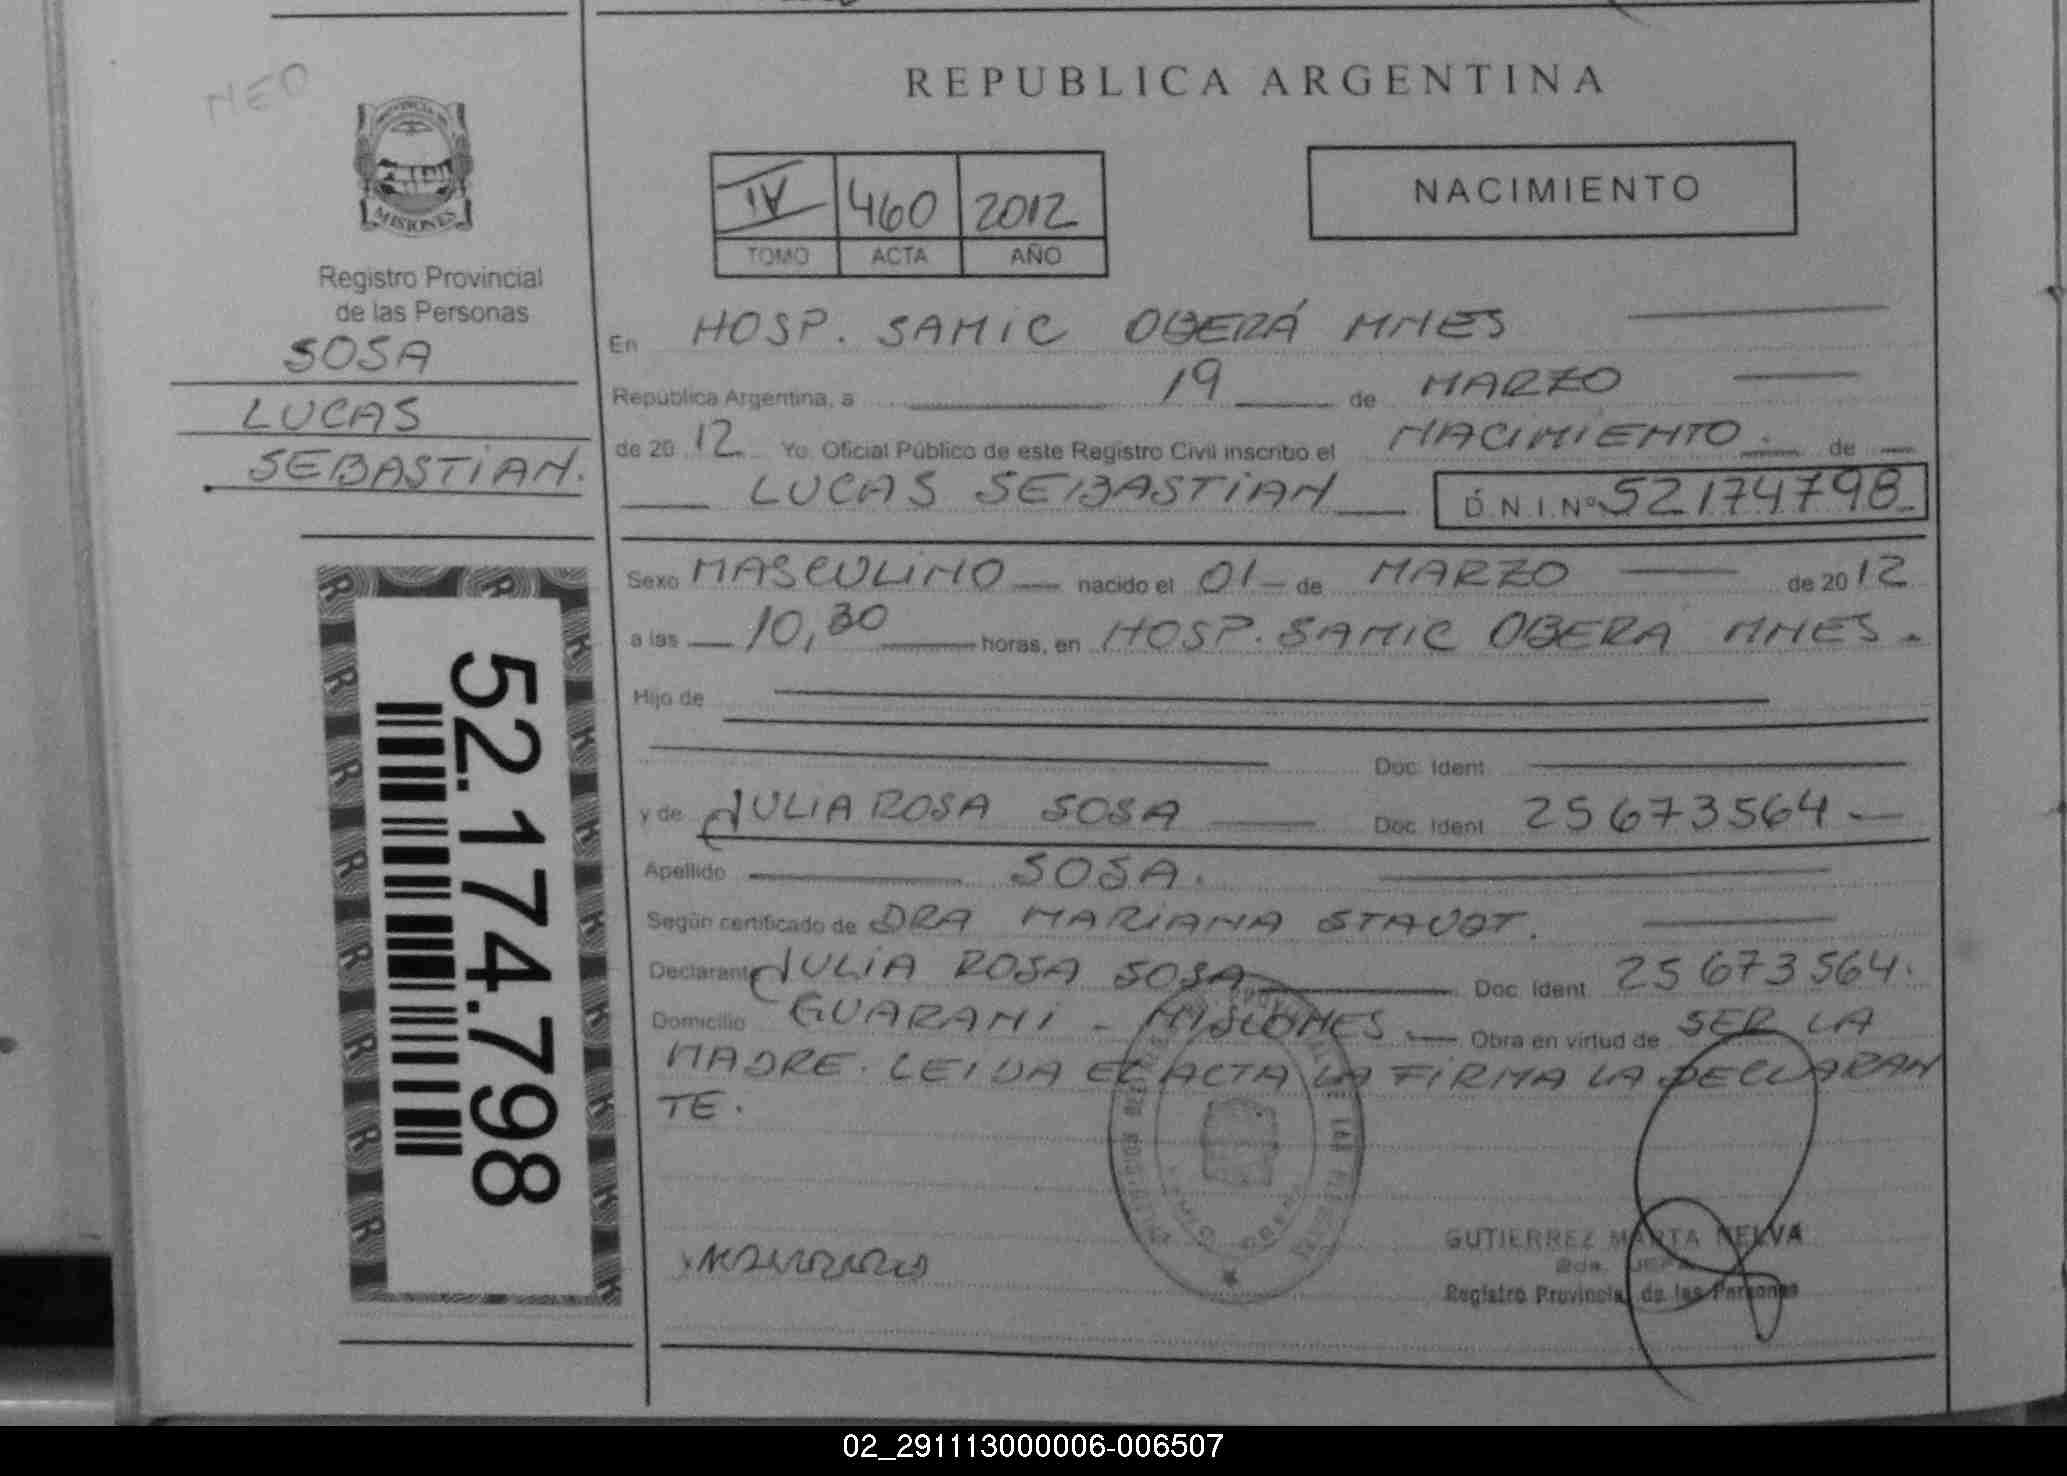 NEO
PROVINCIA DE
MISIONES
Registro Provincial
de las Personas
SOSA
LUCAS
SEBASTIAN.
52.174.798
REPUBLICA ARGENTINA
IV 460 2012
TOMO ACTA AÑO
NACIMIENTO
En HOSP. SAMIC OBERÁ MNES
República Argentina, a 19 de MARZO
de 2012 Yo. Oficial Público de este Registro Civil inscribo el NACIMIENTO de
LUCAS SEBASTIAN D.N.I.Nº 52174798
Sexo MASCULINO nacido el 01 de MARZO de 2012
a las 10,30 horas, en HOSP. SAMIC OBERA MNES.
Hijo de
Doc. Ident.
y de JULIA ROSA SOSA Doc. Ident. 25673564
Apellido SOSA.
Según certificado de DRA MARIANA
Declarante JULIA ROSA SOSA Doc. Ident. 25673564.
Domicilio GUARANI - MISIONES Obra en virtud de SER LA
MADRE. LEIDA EL ACTA LA FIRMA LA DECLARAN
TE.
GUTIERREZ MARTA NELVA
2da. JEFA
Registro Provincial de las Personas
02_291113000006-006507